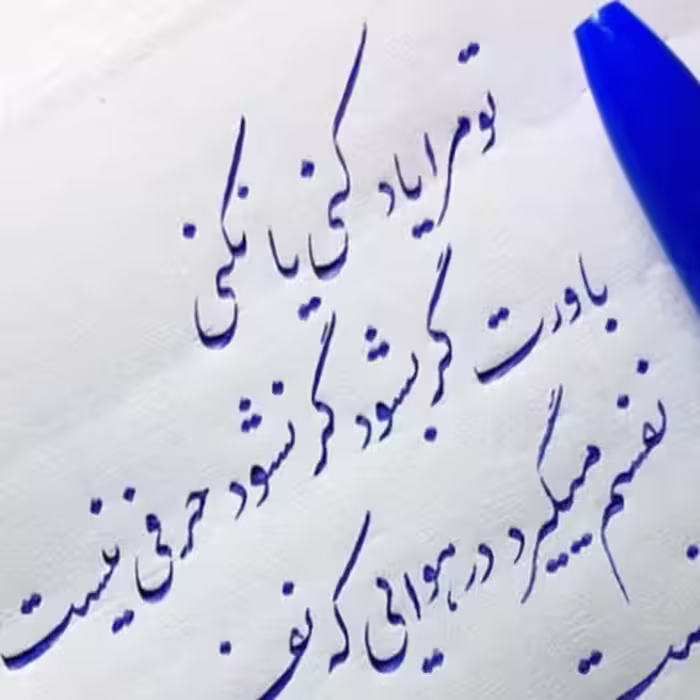 تو مرا یاد کنی یا نکنی
باورت گر بشود گر نشود حرفی نیست
نفسم میگیرد در هوایی که نف
ست